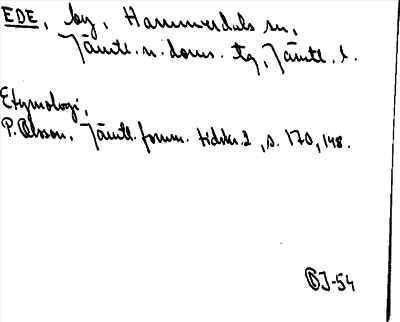 EDE, by, Hammerdals sn,
Jämtl. n. doms. tg, Jämtl. l.
Etymologi,
P. Olsson, Jämtl. fornm. tidskr. 2, s. 170, 148.
BJ-54